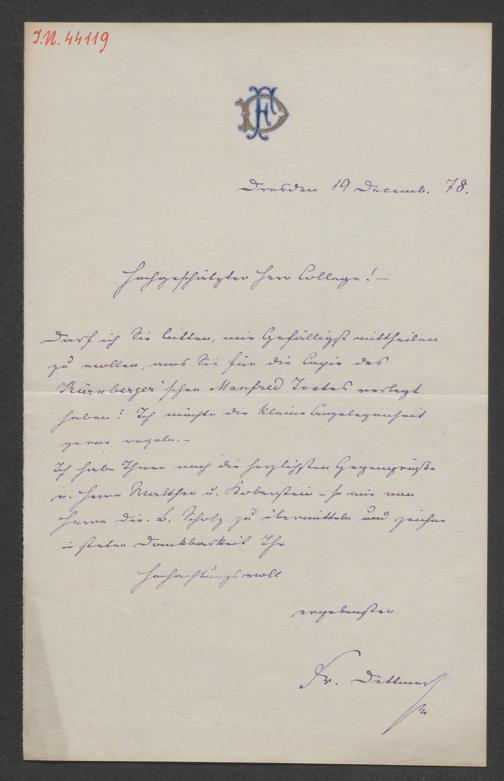 J.N. 44119
FD
Dresden 19 Decemb. 78.
Hochgeschätzter Herr College! –
Darf ich Sie bitten, mir gefälligst mittheilen
zu wollen, was Sie für die Copie des
Kürnberger'schen Manfred Textes verlegt
haben? Ich möchte die kleine Angelegenheit
gerne regeln. –
Ich habe Ihnen noch die herzlichsten Gegengrüße
v. Herrn Walther u. Koberstein – so wie von
Herrn Dir. B. Scholz zu übermitteln und zeichne
in steter Dankbarkeit Ihr
hochachtungsvoll
ergebenster
Fr. Dettmer